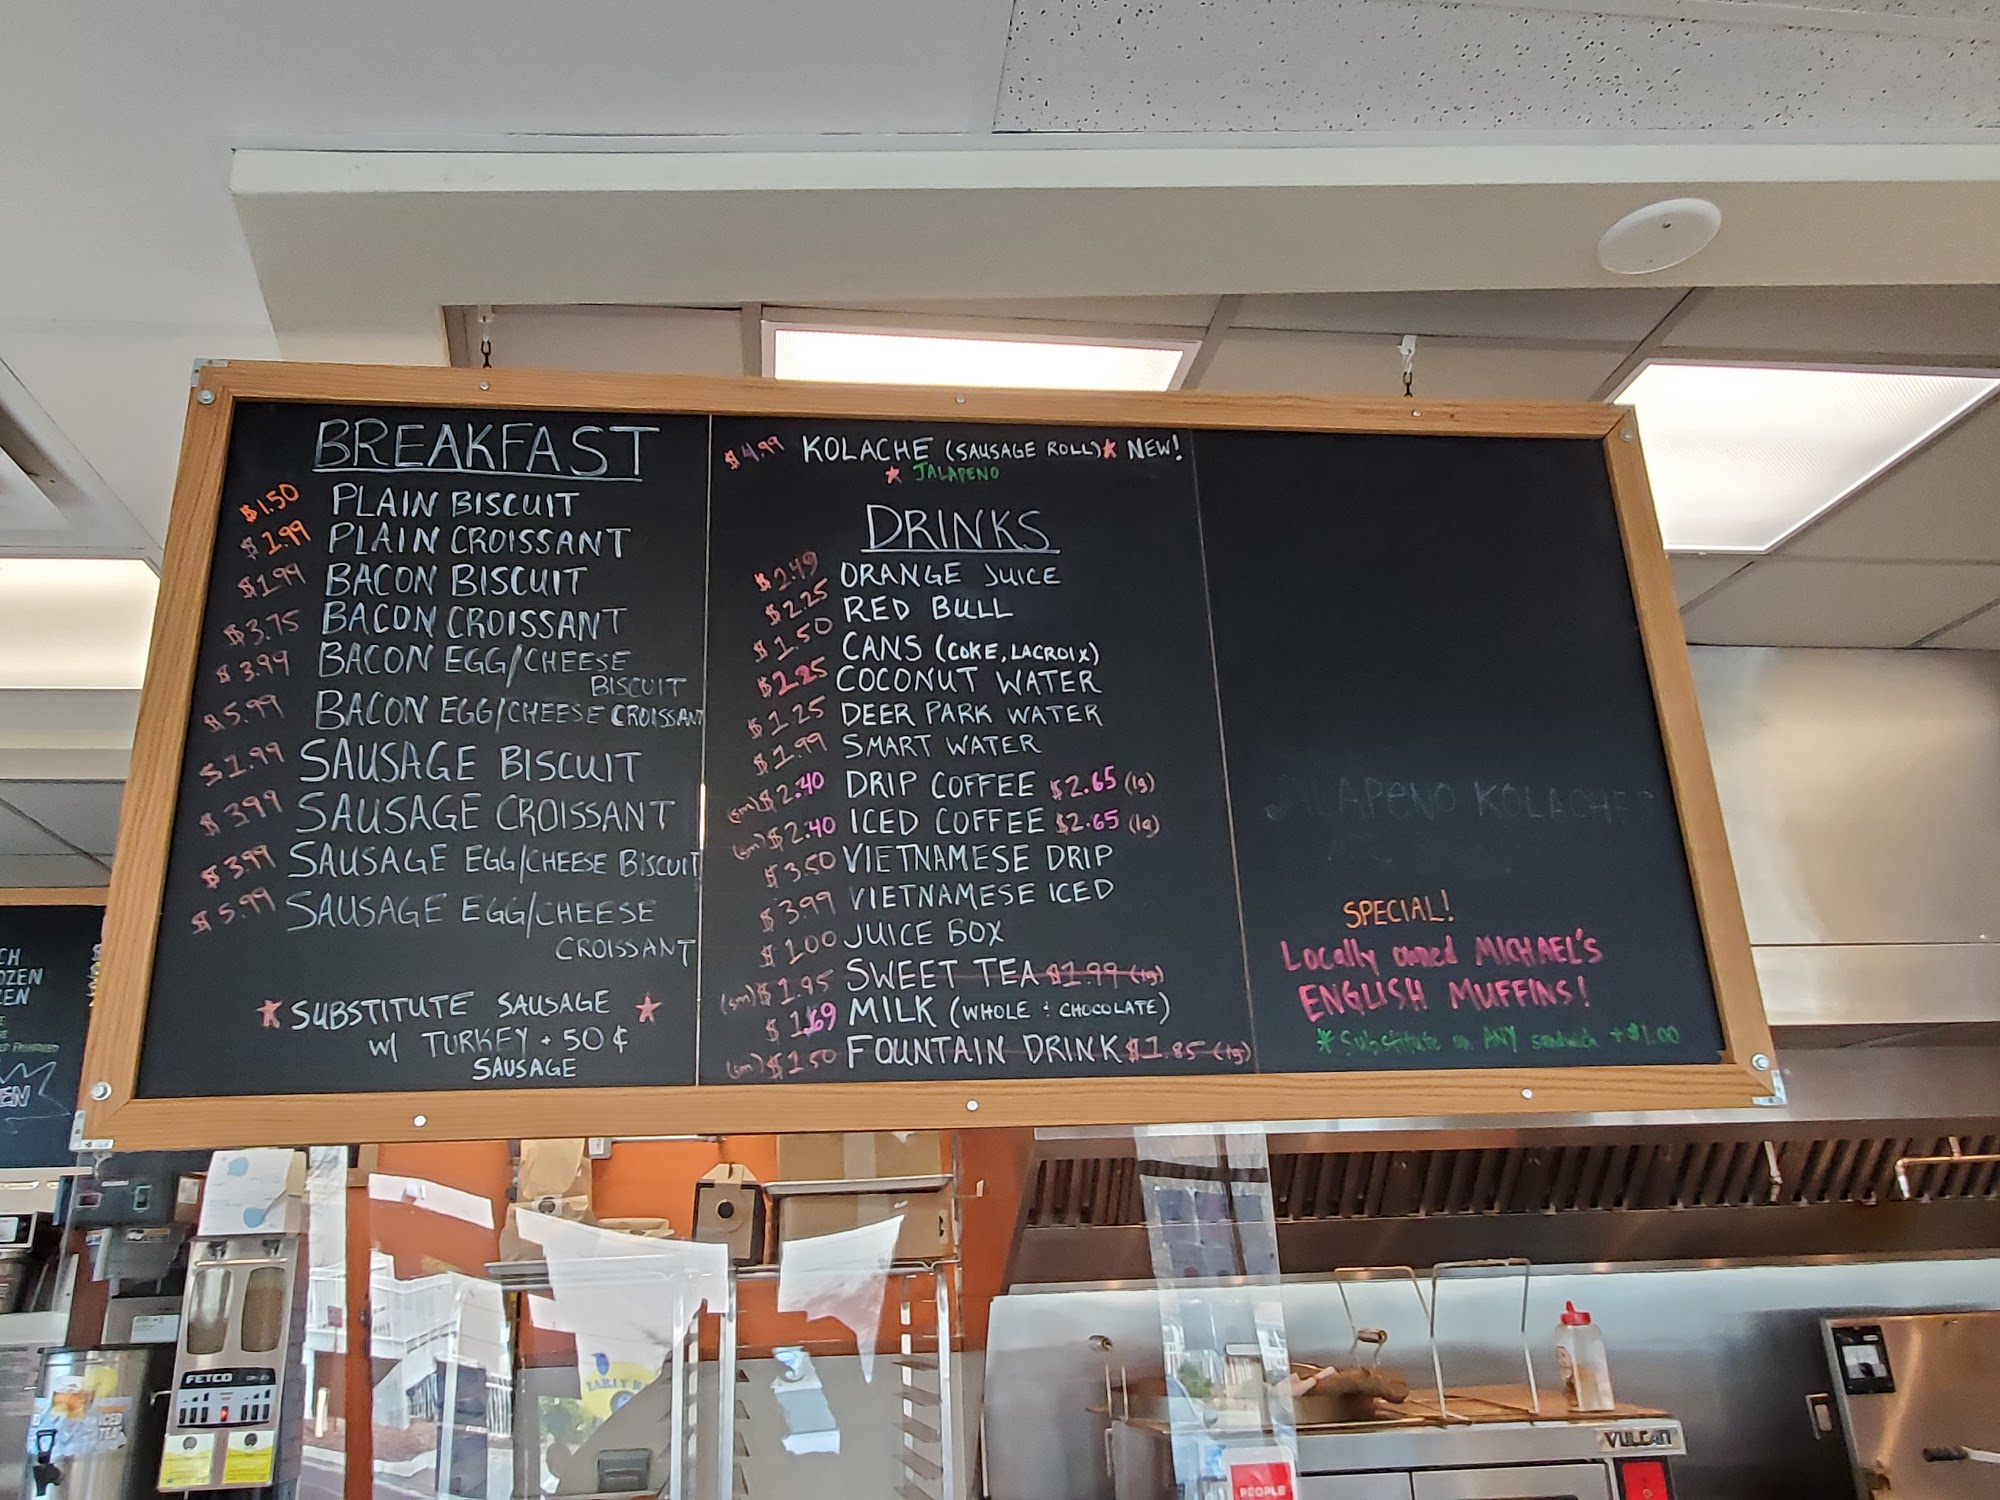 BREAKFAST
$1.50 PLAIN BISCUIT
$1.99 PLAIN CROISSANT
$1.99 BACON BISCUIT
$3.75 BACON CROISSANT
$3.99 BACON EGG/CHEESE
BISCUIT
$5.99 BACON EGG/CHEESE CROISSANT
$1.99 SAUSAGE BISCUIT
$3.99 SAUSAGE CROISSANT
$3.99 SAUSAGE EGG/CHEESE BISCUIT
$5.99 SAUSAGE EGG/CHEESE
CROISSANT
* SUBSTITUTE SAUSAGE *
w/ TURKEY + 50¢
SAUSAGE
$4.99 KOLACHE (SAUSAGE ROLL)* NEW!
* JALAPENO
DRINKS
$2.49 ORANGE JUICE
$2.25 RED BULL
$1.50 CANS (COKE, LACROIX)
$2.25 COCONUT WATER
$1.25 DEER PARK WATER
$1.99 SMART WATER
(sm) $2.40 DRIP COFFEE $2.65 (lg)
(sm) $2.40 ICED COFFEE $2.65 (lg)
$3.50 VIETNAMESE DRIP
$3.99 VIETNAMESE ICED
$1.00 JUICE BOX
(sm) $1.95 SWEET TEA $1.99 (lg)
$1.69 MILK (WHOLE + CHOCOLATE)
(sm) $1.50 FOUNTAIN DRINK $1.85 (lg)
JALAPENO KOLACHE
SPECIAL!
Locally owned MICHAEL'S
ENGLISH MUFFINS!
* Substitute on ANY sandwich + $1.00
CH
OZEN
EN
EN
FETCO
ICED
TEA
EARLY
VULCAN
PEOPLE